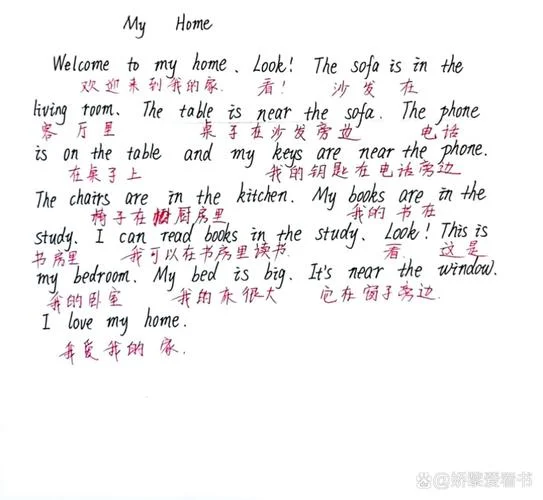 My Home
Welcome to my home. Look! The sofa is in the
欢迎来到我的家. 看! 沙发在
living room. The table is near the sofa. The phone
客厅里 桌子在沙发旁边 电话
is on the table and my keys are near the phone.
在桌子上 我的钥匙在电话旁边
The chairs are in the kitchen. My books are in the
椅子在厨房里 我的书在
study. I can read books in the study. Look! This is
书房里 我可以在书房里读书. 看 这是
my bedroom. My bed is big. It's near the window.
我的卧室 我的床很大 它在窗子旁边.
I love my home.
我爱我的家.
@娇黎爱看书